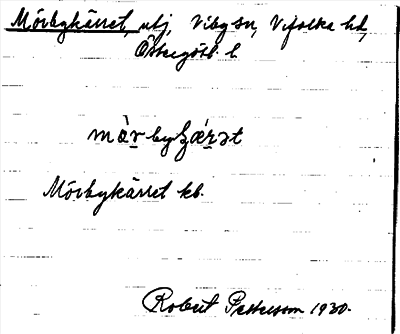 Mörbykärret, utj, Viby sn, Vifolka hd,
Östergötl. l.
mà̱r byʃǽ̱rət
Mörbykärret kb.
Robert Pettersson 1930.